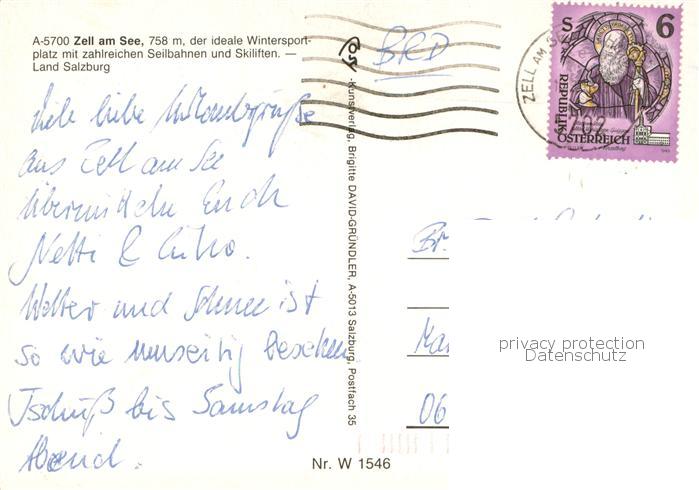 A-5700 Zell am See, 758 m, der ideale Wintersport-
platz mit zahlreichen Seilbahnen und Skiliften. —
Land Salzburg
BRD
Viele liebe Urlaubsgrüße
aus Zell am See
übermitteln Euch
Netti &
Wetter und Schnee ist
so wie umseitig
Tschüß bis Samstag
Abend.
Cosy-Kunstverlag, Brigitte DAVID-GRÜNDLER, A-5013 Salzburg, Postfach 35
Nr. W 1546
S 6
REPUBLIK
ÖSTERREICH
ZELL AM
5702
06
privacy protection
Datenschutz